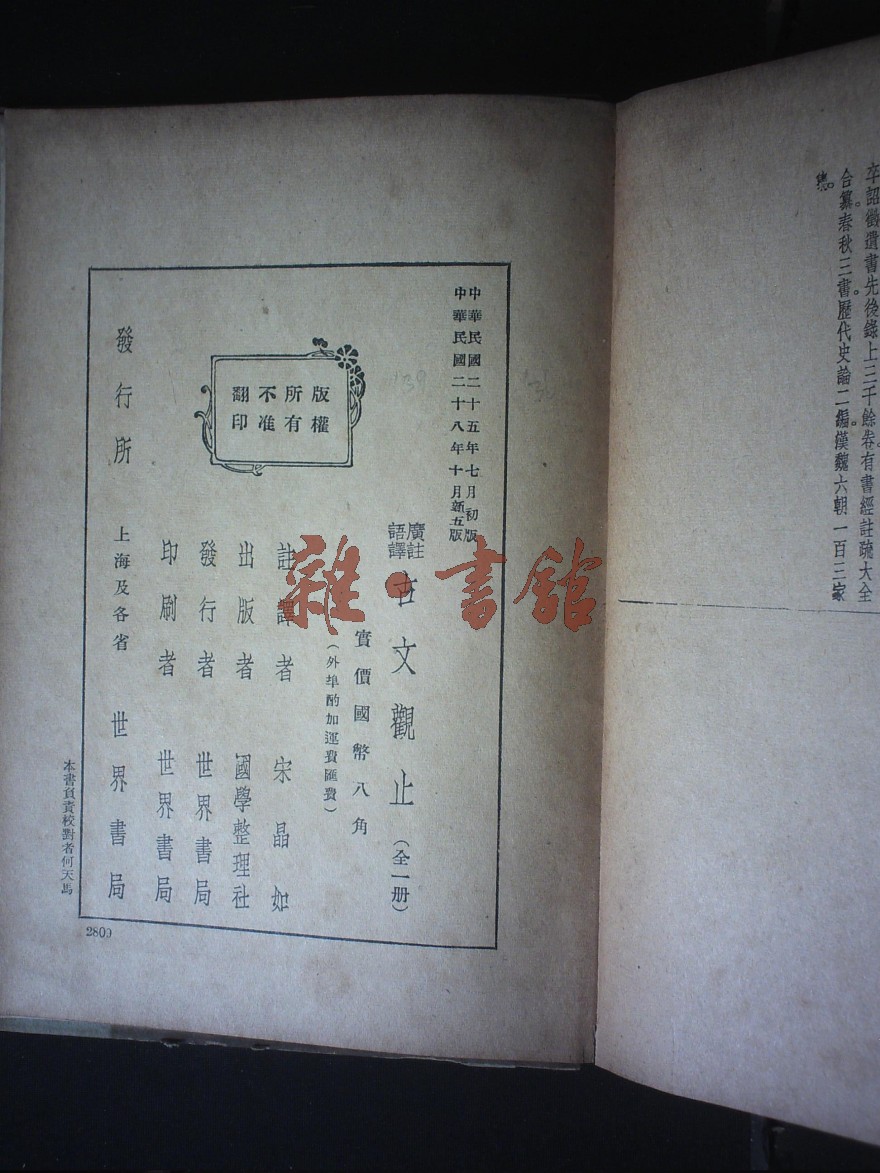 卒詔徵遺書先後錄上三千餘卷。有書經註疏大全
合纂。春秋三書。歷代史論二編。漢魏六朝一百三家
集。
中華民國二十五年七月初版
中華民國二十八年十月新五版
廣註
語譯
古文觀止(全一册)
實價國幣八角
(外埠酌加運費匯費)
註譯者 宋晶如
出版者 國學整理社
發行者 世界書局
印刷者 世界書局
發行所 上海及各省 世界書局
版權
所有
不准
翻印
本書負責校對者何天馬
2809
雜·書館